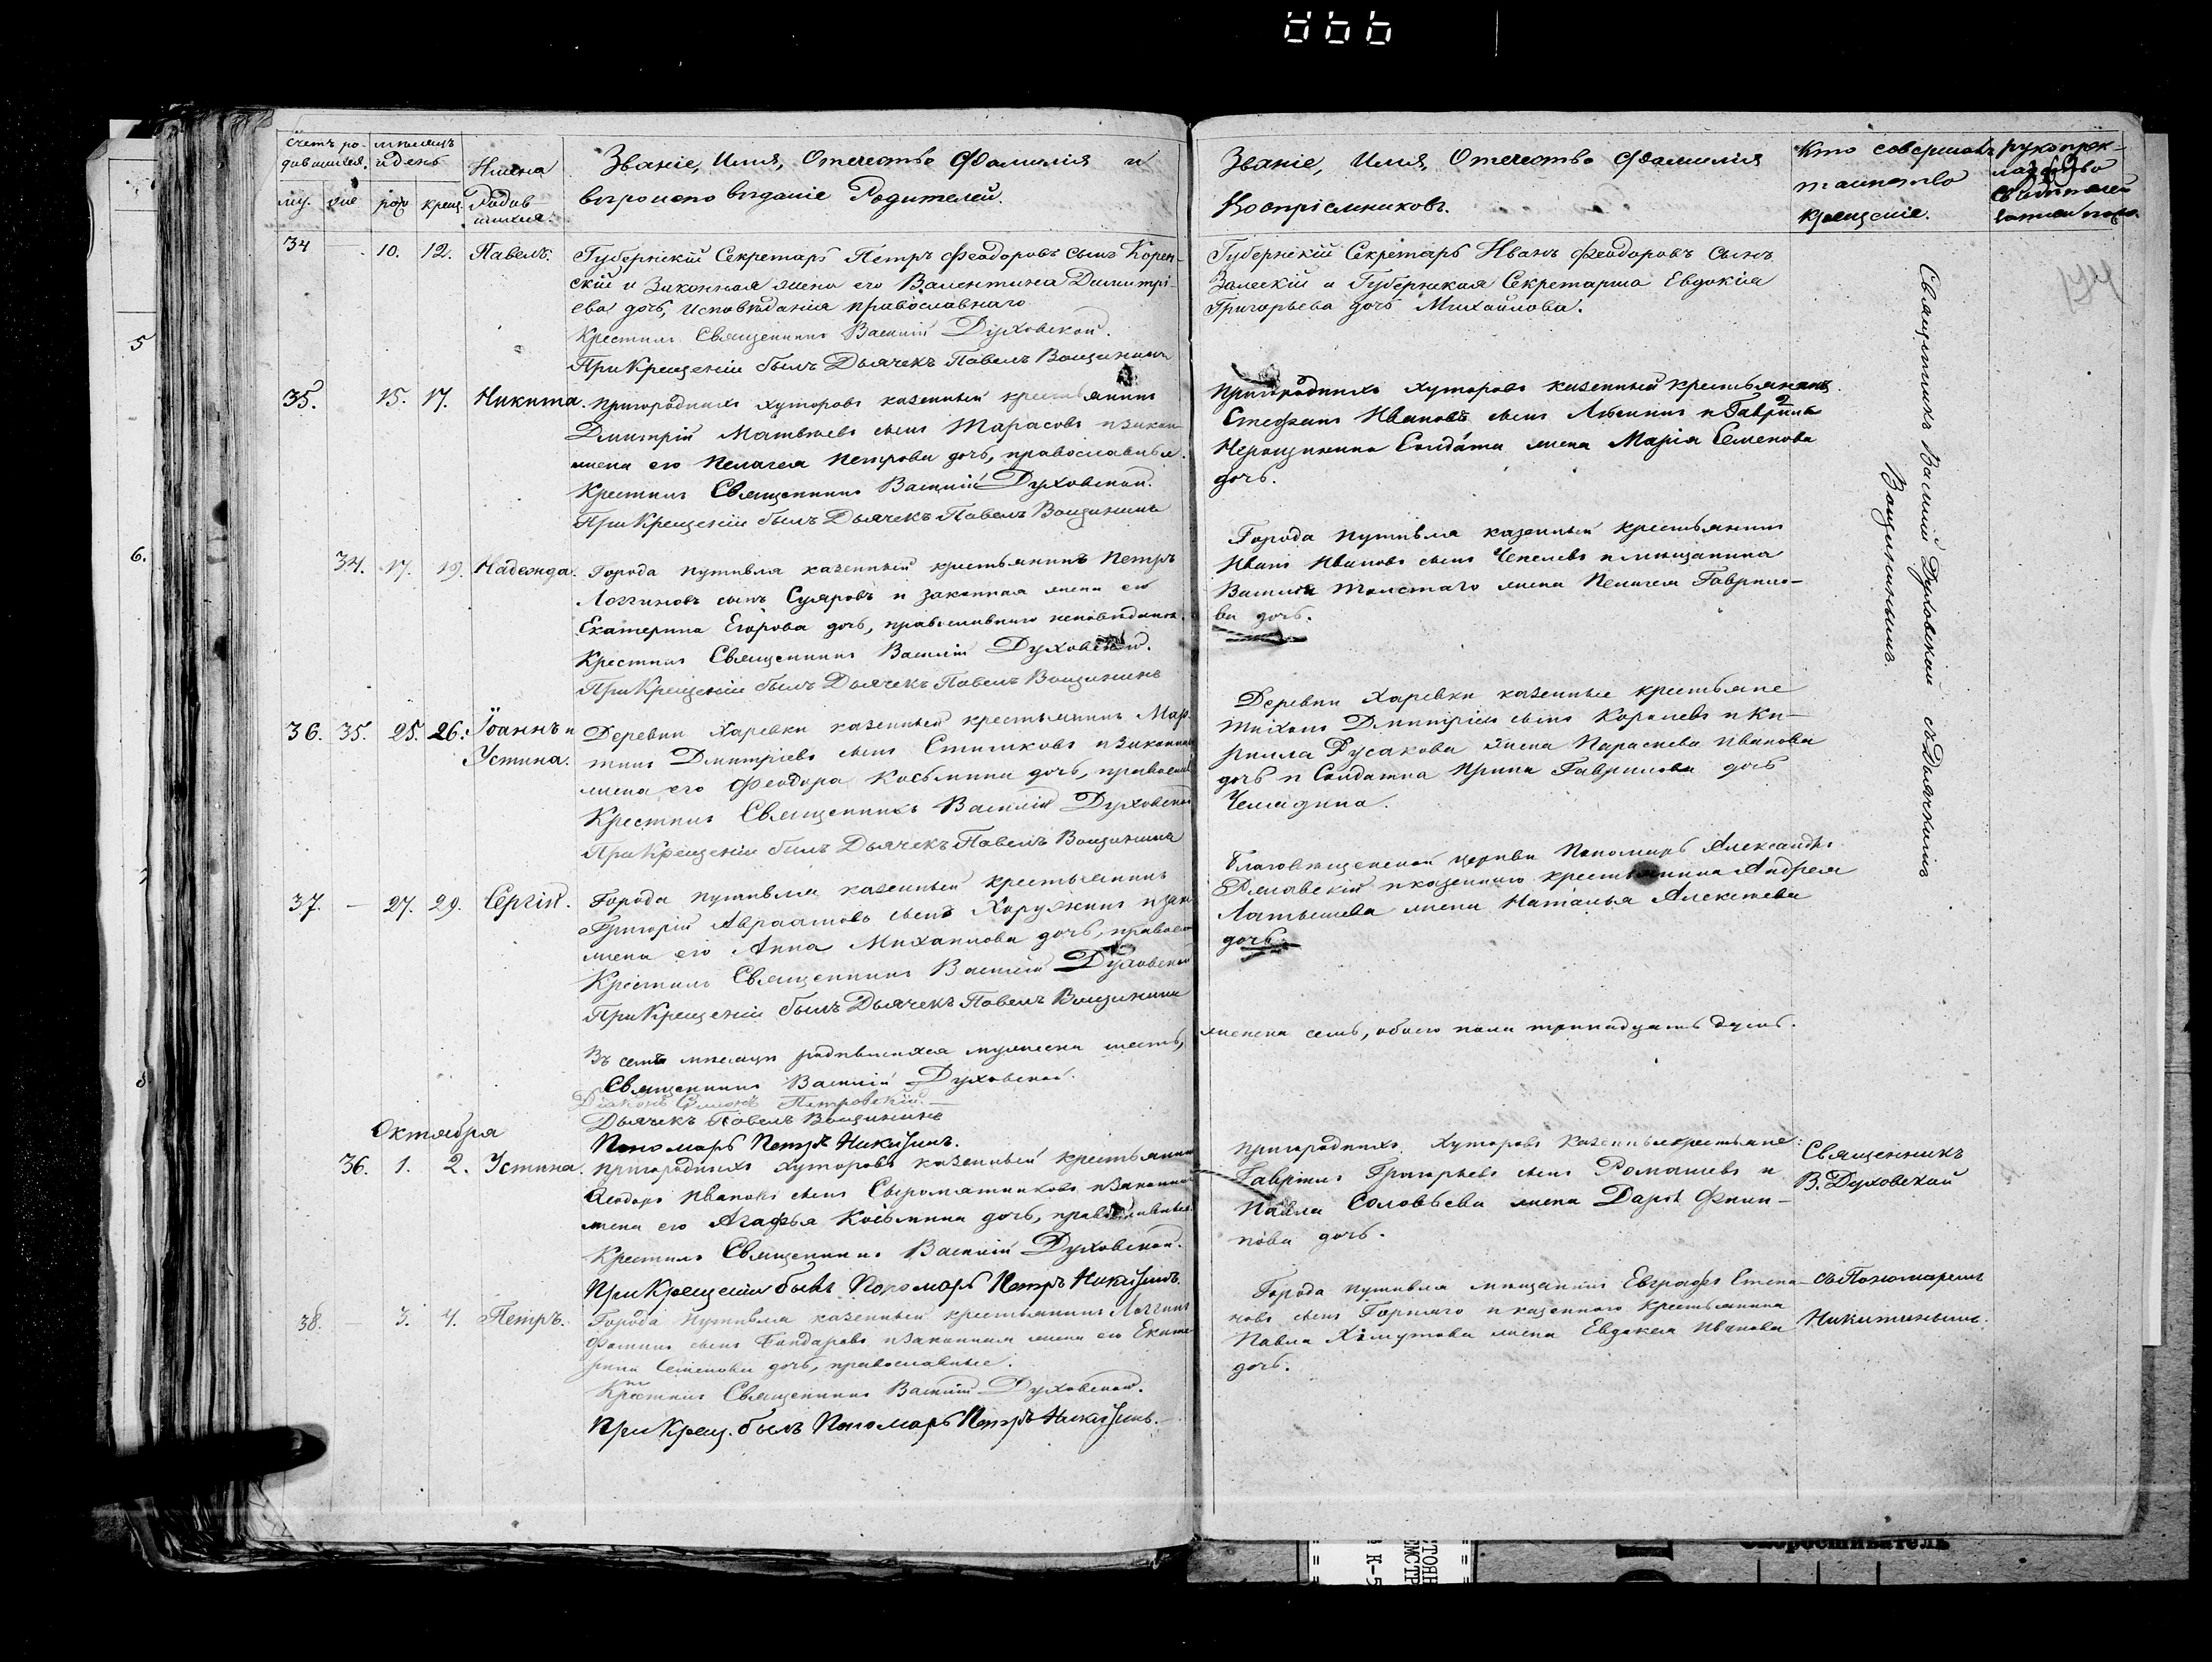 Счетъ ро- мѣсяцъ
дившихся. и день
Имена
Родив
шихся.
му. же рож крещ.
Званіе, Имя, Отечество Фамилія и
вѣроисповѣданіе Родителей.
34 — 10. 12. Павелъ. Губернскій Секретарь Петръ Феодоровъ сынъ Корен-
скій и Законная жена его Валентина Димитрі-
ева дочь, исповѣданія православнаго
Крестилъ Священникъ Василій Духовской.
При Крещеніи былъ Дьячекъ Павелъ Вощининъ
35. 15. 17. Никита. Пригородныхъ хуторовъ казенный крестьянинъ
Дмитрій Матвѣевъ сынъ Тарасовъ и закон
жена его Пелагея Петрова дочь, православные.
Крестилъ Священникъ Василій Духовской.
При Крещеніи былъ Дьячекъ Павелъ Вощининъ
34. 17. 19. Надежда. Города Путивля казенный крестьянинъ Петръ
Логгиновъ сынъ Суяровъ и законная жена его
Екатерина Егорова дочь, православнаго исповѣданія.
Крестилъ Священникъ Василій Духовской.
При Крещеніи былъ Дьячекъ Павелъ Вощининъ
36. 35. 25. 26. Іоаннъ и Деревни Харевки казенный крестьянинъ Мар
Устина. тинъ Дмитріевъ сынъ и законная
жена его Феодора Косьмина дочь, правосл
Крестилъ Священникъ Василій Духовской
При Крещеніи былъ Дьячекъ Павелъ Вощининъ
37. — 27. 29. Сергій. Города Путивля казенный крестьянинъ
Григорій Авраамовъ сынъ Хоружинъ и зак
жена его Анна Михаилова дочь, правосл
Крестилъ Священникъ Василій Духовской
При Крещеніи былъ Дьячекъ Павелъ Вощининъ
Въ семъ мѣсяцѣ родившихся мужеска шесть,
Священникъ Василій Духовской.
Діаконъ Петровскій
Дьячекъ Павелъ Вощининъ
Октября
Пономарь Петръ Никитинъ.
36. 1. 2. Устина. Пригородныхъ хуторовъ казенный крестьянинъ
Феодоръ Ивановъ сынъ Сыромятниковъ и Законная
жена его Агафья Косьмина дочь, православные.
Крестилъ Священникъ Василій Духовской.
При Крещеніи былъ Пономарь Петръ Никитинъ.
38. — 3. 4. Петръ. Города Путивля казенный крестьянинъ Логгинъ
Фоминъ сынъ Бондаровъ и законная жена его Екате
рина Семенова дочь, православные.
Крестилъ Священникъ Василій Духовской.
При Крещ. былъ Пономарь Петръ Никитинъ.
Званіе, Имя, Отечество Фамилія
Воспріемниковъ.
Кто совершалъ
таинство
крещеніе.
рукоприк-
ладство
свидѣтелей
Губернскій Секретарь Иванъ Феодоровъ Сынъ
Залескій и Губернская Секретарша Евдокія
Григорьева дочь Михайлова.
Пригородныхъ хуторовъ казенный крестьянинъ
Стефанъ Ивановъ сынъ и Гавріила
Солдата жена Марія Семенова
дочь.
Города Путивля казенный крестьянинъ
Иванъ Ивановъ сынъ Чепелевъ и мѣщанина
Василія Толстаго жена Пелагея Гаврило-
ва дочь.
Деревни Харевки казенные крестьяне
Тихонъ Дмитріевъ сынъ Королевъ и Ки-
рилла Русакова жена Параскева Иванова
дочь и Солдатка Ирина Гаврилова дочь
Чемадина.
Благовѣщенской церкви Пономарь Александръ
и казеннаго крестьянина Андрея
Латышева жена Наталья Алексѣева
дочь.
женска семь, обоего пола тринадцать душъ.
Священникъ Василій Духовской съ Дьячкомъ
Вощининымъ.
Пригородныхъ хуторовъ казенные крестьяне:
Гавріилъ Григорьевъ сынъ Ромашевъ и
Павла Соловьева жена Дарія Филип-
пова дочь.
Священникъ
В. Духовской
Города Путивля мѣщанинъ Евграфъ Степа-
новъ сынъ Горпаго и казеннаго крестьянина
Павла Хомутова жена Евдокея Иванова
дочь.
съ Пономаремъ
Никитинымъ.